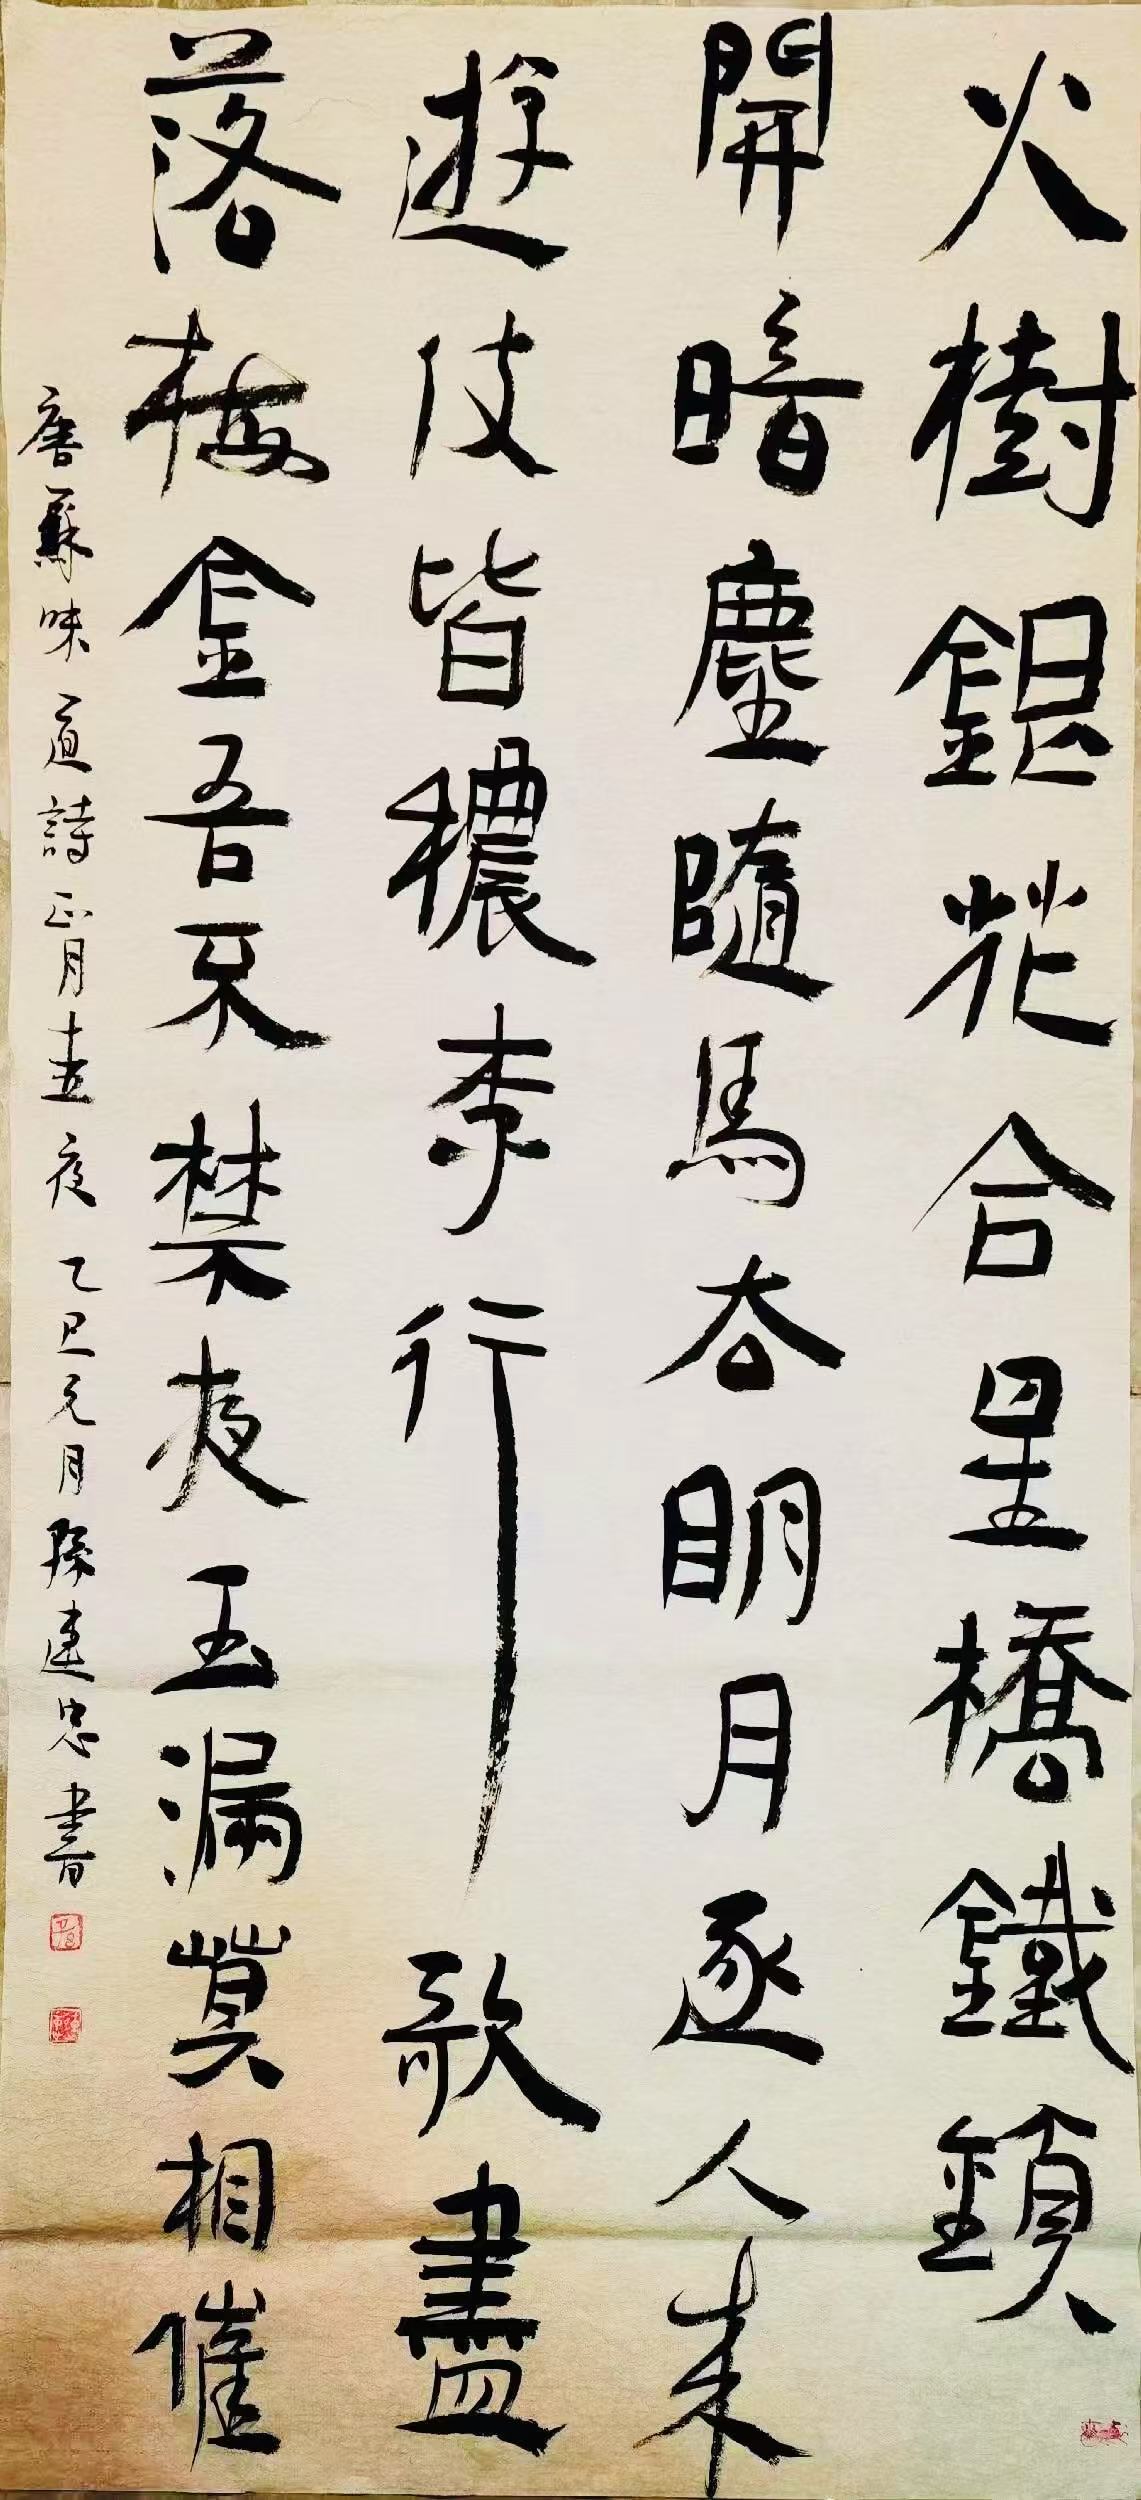 火樹銀花合星橋鐵鎖
開暗塵隨馬去明月逐人来
遊伎皆穠李行歌盡
落梅金吾不禁夜玉漏莫相催
唐蘇味道詩正月十五夜乙巳元月孫建忠書